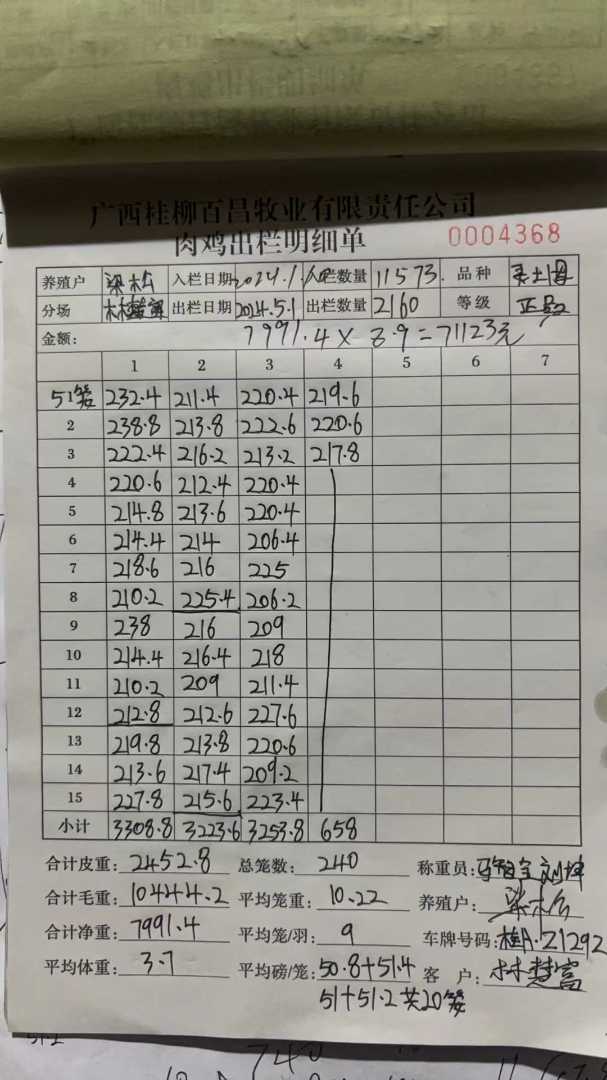 广西桂柳百昌牧业有限责任公司
肉鸡出栏明细单 0004368
养殖户 梁松 入栏日期 2024.1. 入栏数量 11573. 品种
分场 出栏日期 2024.5.1 出栏数量 2160 等级 正品
金额: 7991.4×8.9=71123元
1 2 3 4 5 6 7
51笼 232.4 211.4 220.4 219.6
2 238.8 213.8 222.6 220.6
3 222.4 216.2 213.2 217.8
4 220.6 212.4 220.4
5 214.8 213.6 220.4
6 214.4 214 206.4
7 218.6 216 225
8 210.2 225.4 206.2
9 238 216 209
10 214.4 216.4 218
11 210.2 209 211.4
12 212.8 212.6 227.6
13 219.8 213.8 220.6
14 213.6 217.4 209.2
15 227.8 215.6 223.4
小计 3308.8 3223.6 3253.8 658
合计皮重: 2452.8 总笼数: 240 称重员:
合计毛重: 10444.2 平均笼重: 10.22 养殖户: 梁松
合计净重: 7991.4 平均笼/羽: 9 车牌号码: 桂A·Z1292
平均体重: 3.7 平均磅/笼: 50.8+51.4 客户: 林慧富
51+51.2 共20笼